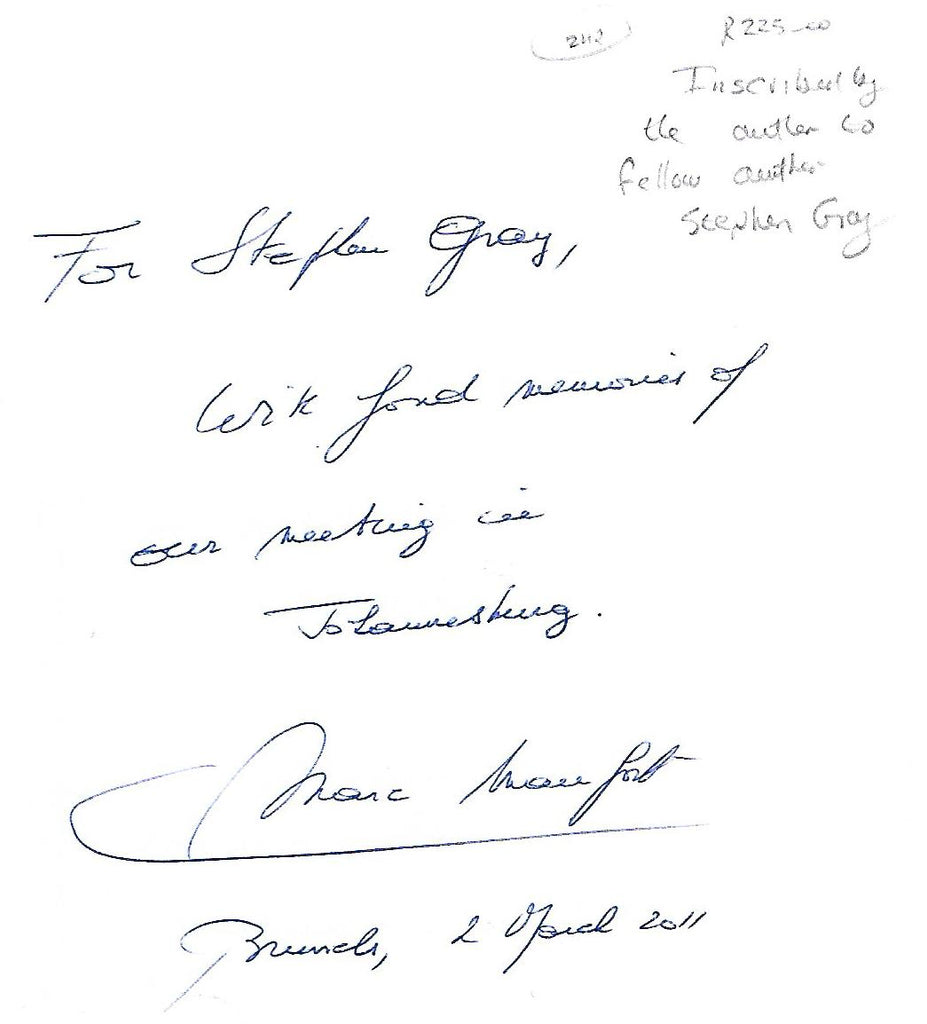 R225-00
Inscribed by
the author to
fellow author
Stephen Gray
For Stephen Gray,
With fond memories of
our meeting in
Johannesburg.
Marc Maufort
Brussels, 2 March 2011